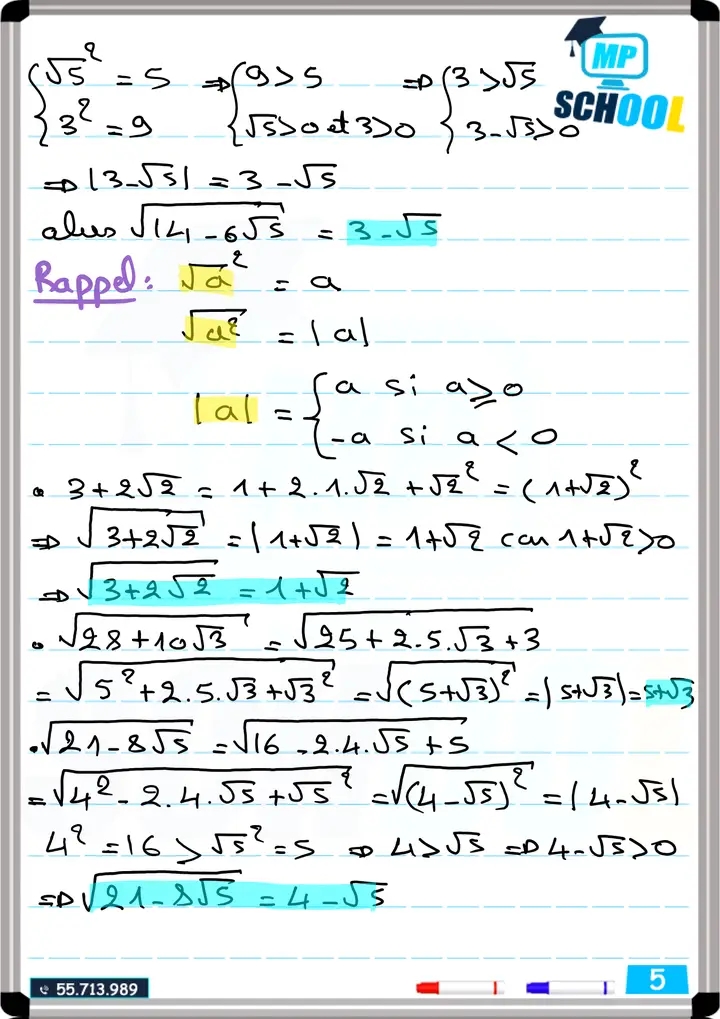 MP
SCHOOL
{ √5² = 5 ⇒ { 9 > 5 ⇒ { 3 > √5
{ 3² = 9 { √5 > 0 et 3 > 0 { 3 - √5 > 0
⇒ |3 - √5| = 3 - √5
alors √(14 - 6√5) = 3 - √5
Rappel : √a² = a
√(a²) = |a|
|a| = { a si a ≥ 0
{ -a si a < 0
• 3 + 2√2 = 1 + 2.1.√2 + √2² = (1 + √2)²
⇒ √(3 + 2√2) = |1 + √2| = 1 + √2 car 1 + √2 > 0
⇒ √(3 + 2√2) = 1 + √2
• √(28 + 10√3) = √(25 + 2.5.√3 + 3)
= √(5² + 2.5.√3 + √3²) = √((5 + √3)²) = |5 + √3| = 5 + √3
• √(21 - 8√5) = √(16 - 2.4.√5 + 5)
= √(4² - 2.4.√5 + √5²) = √((4 - √5)²) = |4 - √5|
4² = 16 > √5² = 5 ⇒ 4 > √5 ⇒ 4 - √5 > 0
⇒ √(21 - 8√5) = 4 - √5
55.713.989
5